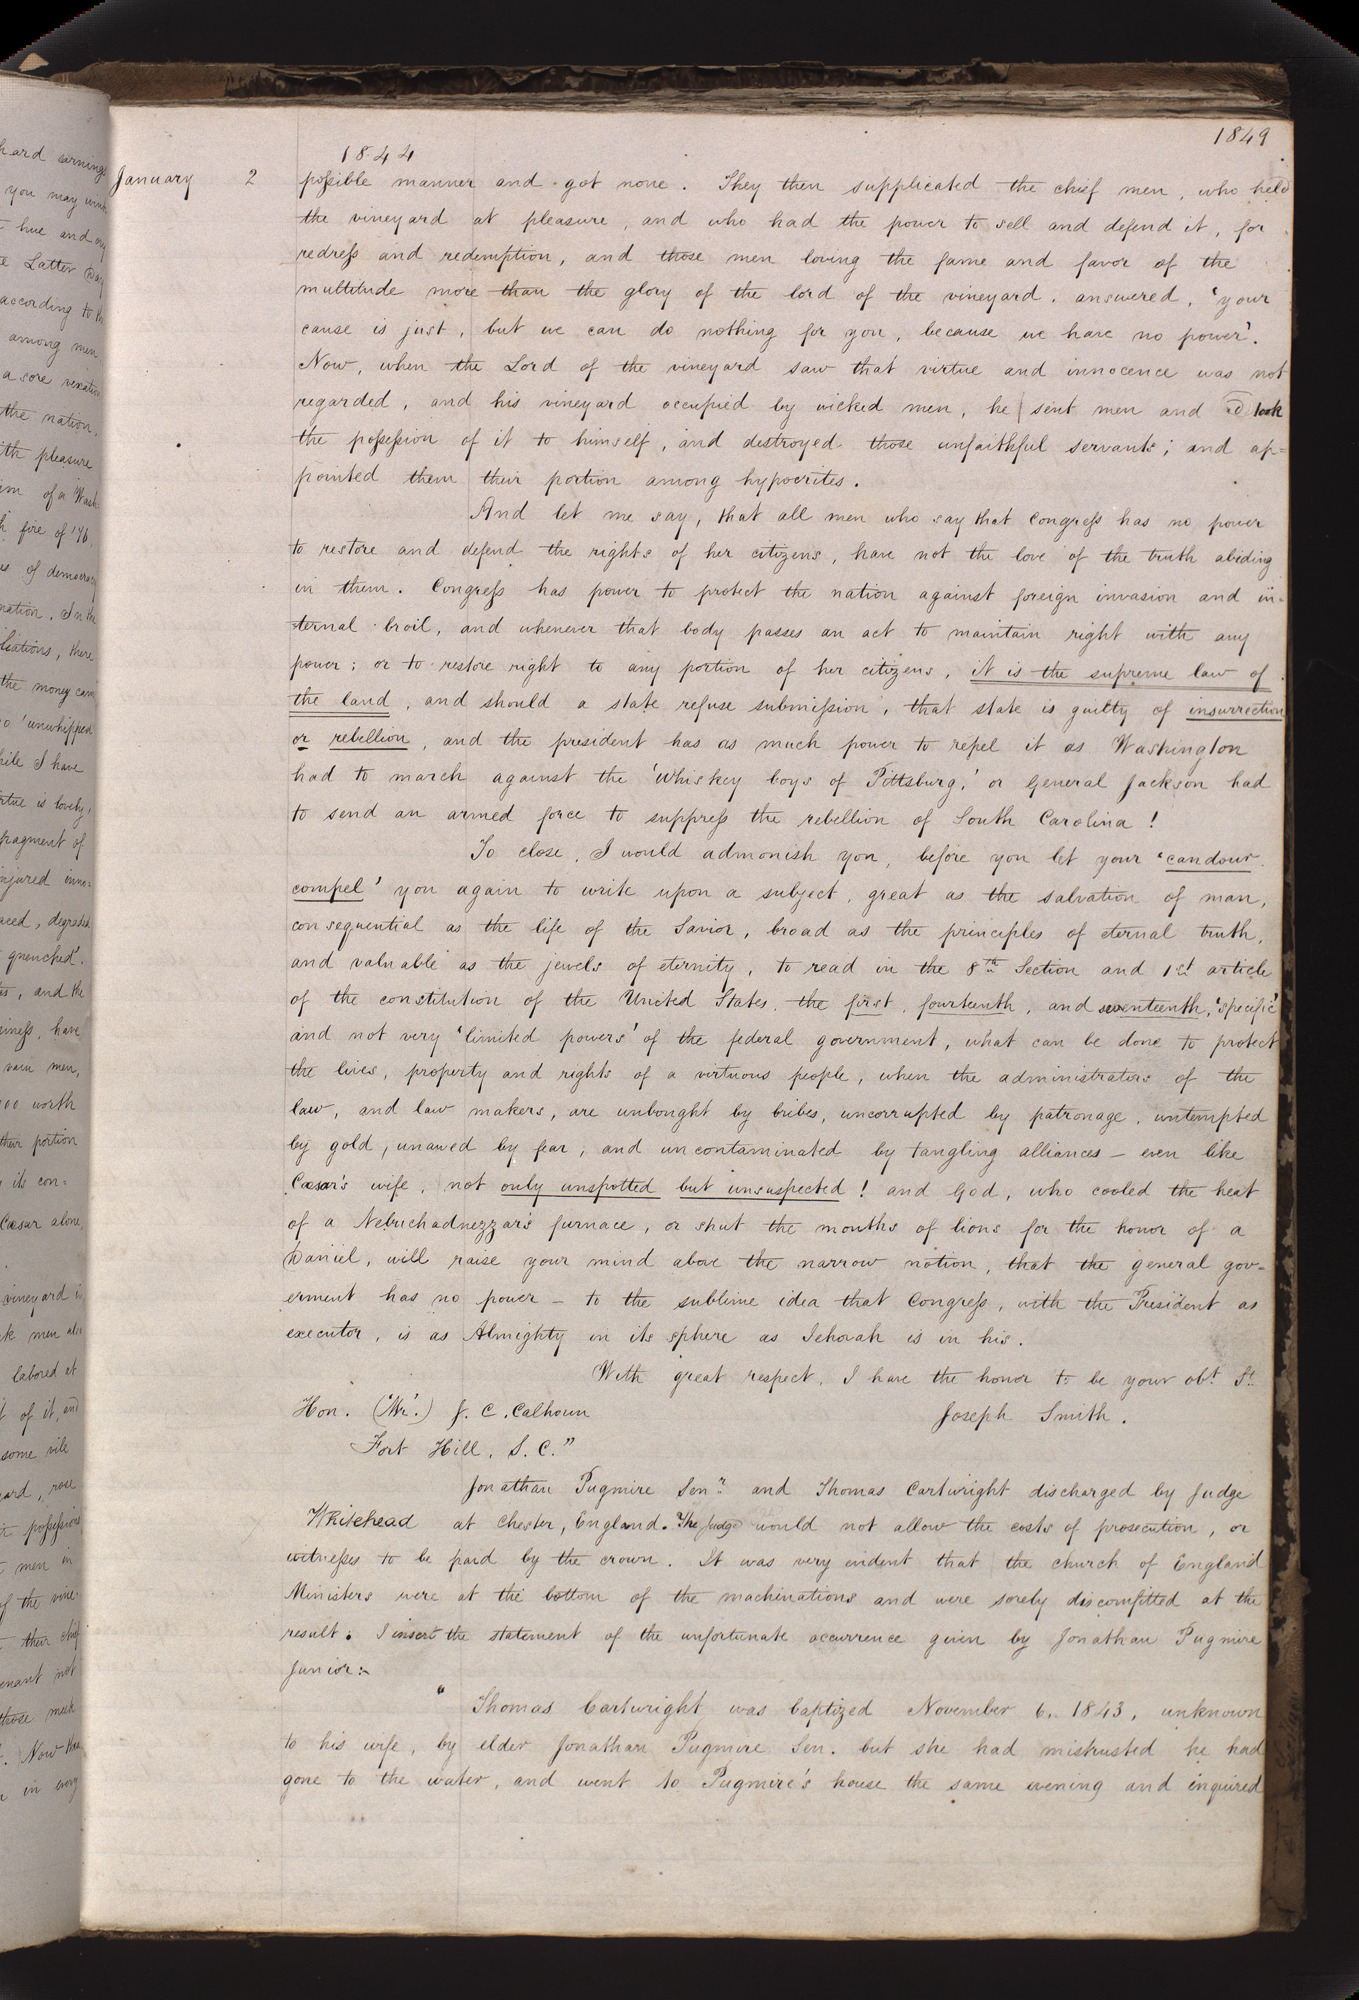 1849
1844
January 2 possible manner and got none. They then supplicated the chief men, who held
the vineyard at pleasure, and who had the power to sell and defend it, for
redress and redemption, and those men loving the fame and favor of the
multitude more than the glory of the lord of the vineyard, answered, 'your
cause is just, but we can do nothing for you, because we have no power'.
Now, when the Lord of the vineyard saw that virtue and innocence was not
regarded, and his vineyard occupied by wicked men, he sent men and took
the possession of it to himself, and destroyed those unfaithful servants; and ap=
pointed them their portion among hypocrites.
And let me say, that all men who say that Congress has no power
to restore and defend the rights of her citizens, have not the love of the truth abiding
in them. Congress has power to protect the nation against foreign invasion and in=
ternal broil, and whenever that body passes an act to maintain right with any
power; or to restore right to any portion of her citizens, it is the supreme law of
the land, and should a state refuse submission, that state is guilty of insurrection
or rebellion, and the president has as much power to repel it as Washington
had to march against the 'whiskey boys of Pittsburg,' or General Jackson had
to send an armed force to suppress the rebellion of South Carolina!
To close, I would admonish you, before you let your 'candour
compel' you again to write upon a subject, great as the salvation of man,
consequential as the life of the Savior, broad as the principles of eternal truth,
and valuable as the jewels of eternity, to read in the 8th Section and 1st article
of the constitution of the United States, the first, fourteenth, and seventeenth, 'specific'
and not very 'limited powers' of the federal government, what can be done to protect
the lives, property and rights of a virtuous people, when the administrators of the
law, and law makers, are unbought by bribes, uncorrupted by patronage, untempted
by gold, unawed by fear, and uncontaminated by tangling alliances — even like
Cæsar's wife, not only unspotted but unsuspected! and God, who cooled the heat
of a Nebuchadnezzar's furnace, or shut the mouths of lions for the honor of a
Daniel, will raise your mind above the narrow notion, that the general gov-
erment has no power — to the sublime idea that Congress, with the President as
executor, is as Almighty in its sphere as Jehovah is in his.
With great respect, I have the honor to be your obt. St.
Hon. ('Mr.') J. C. Calhoun Joseph Smith.
Fort Hill, S. C."
Jonathan Pugmire Senr. and Thomas Cartwright discharged by Judge
Whitehead at Chester, England. The Judge would not allow the costs of prosecution, or
witnesses to be paid by the crown. It was very evident that the church of England
Ministers were at the bottom of the machinations and were sorely discomfitted at the
result. I insert the statement of the unfortunate occurrence given by Jonathan Pugmire
Junior:-
"Thomas Cartwright was baptized November 6, 1843, unknown
to his wife, by elder Jonathan Pugmire Sen. but she had mistrusted he had
gone to the water, and went to Pugmire's house the same evening and inquired
hard earnings
you may
hue and cry
Latter Day
according to the
among men
a sore vexation
the nation,
with pleasure
of a Wash
fire of '76,
of democracy
nation. In the
there
the money
'unwhipped
while I have
virtue is lovely,
fragment of
injured inno=
degraded
quenched'.
and the
have
vain men,
worth
their portion
its con=
Cæsar alone,
vineyard
men
labored at
of it, and
some vile
rose
possessions
men in
of the vine-
their chief
not
those meek
Now these
in every